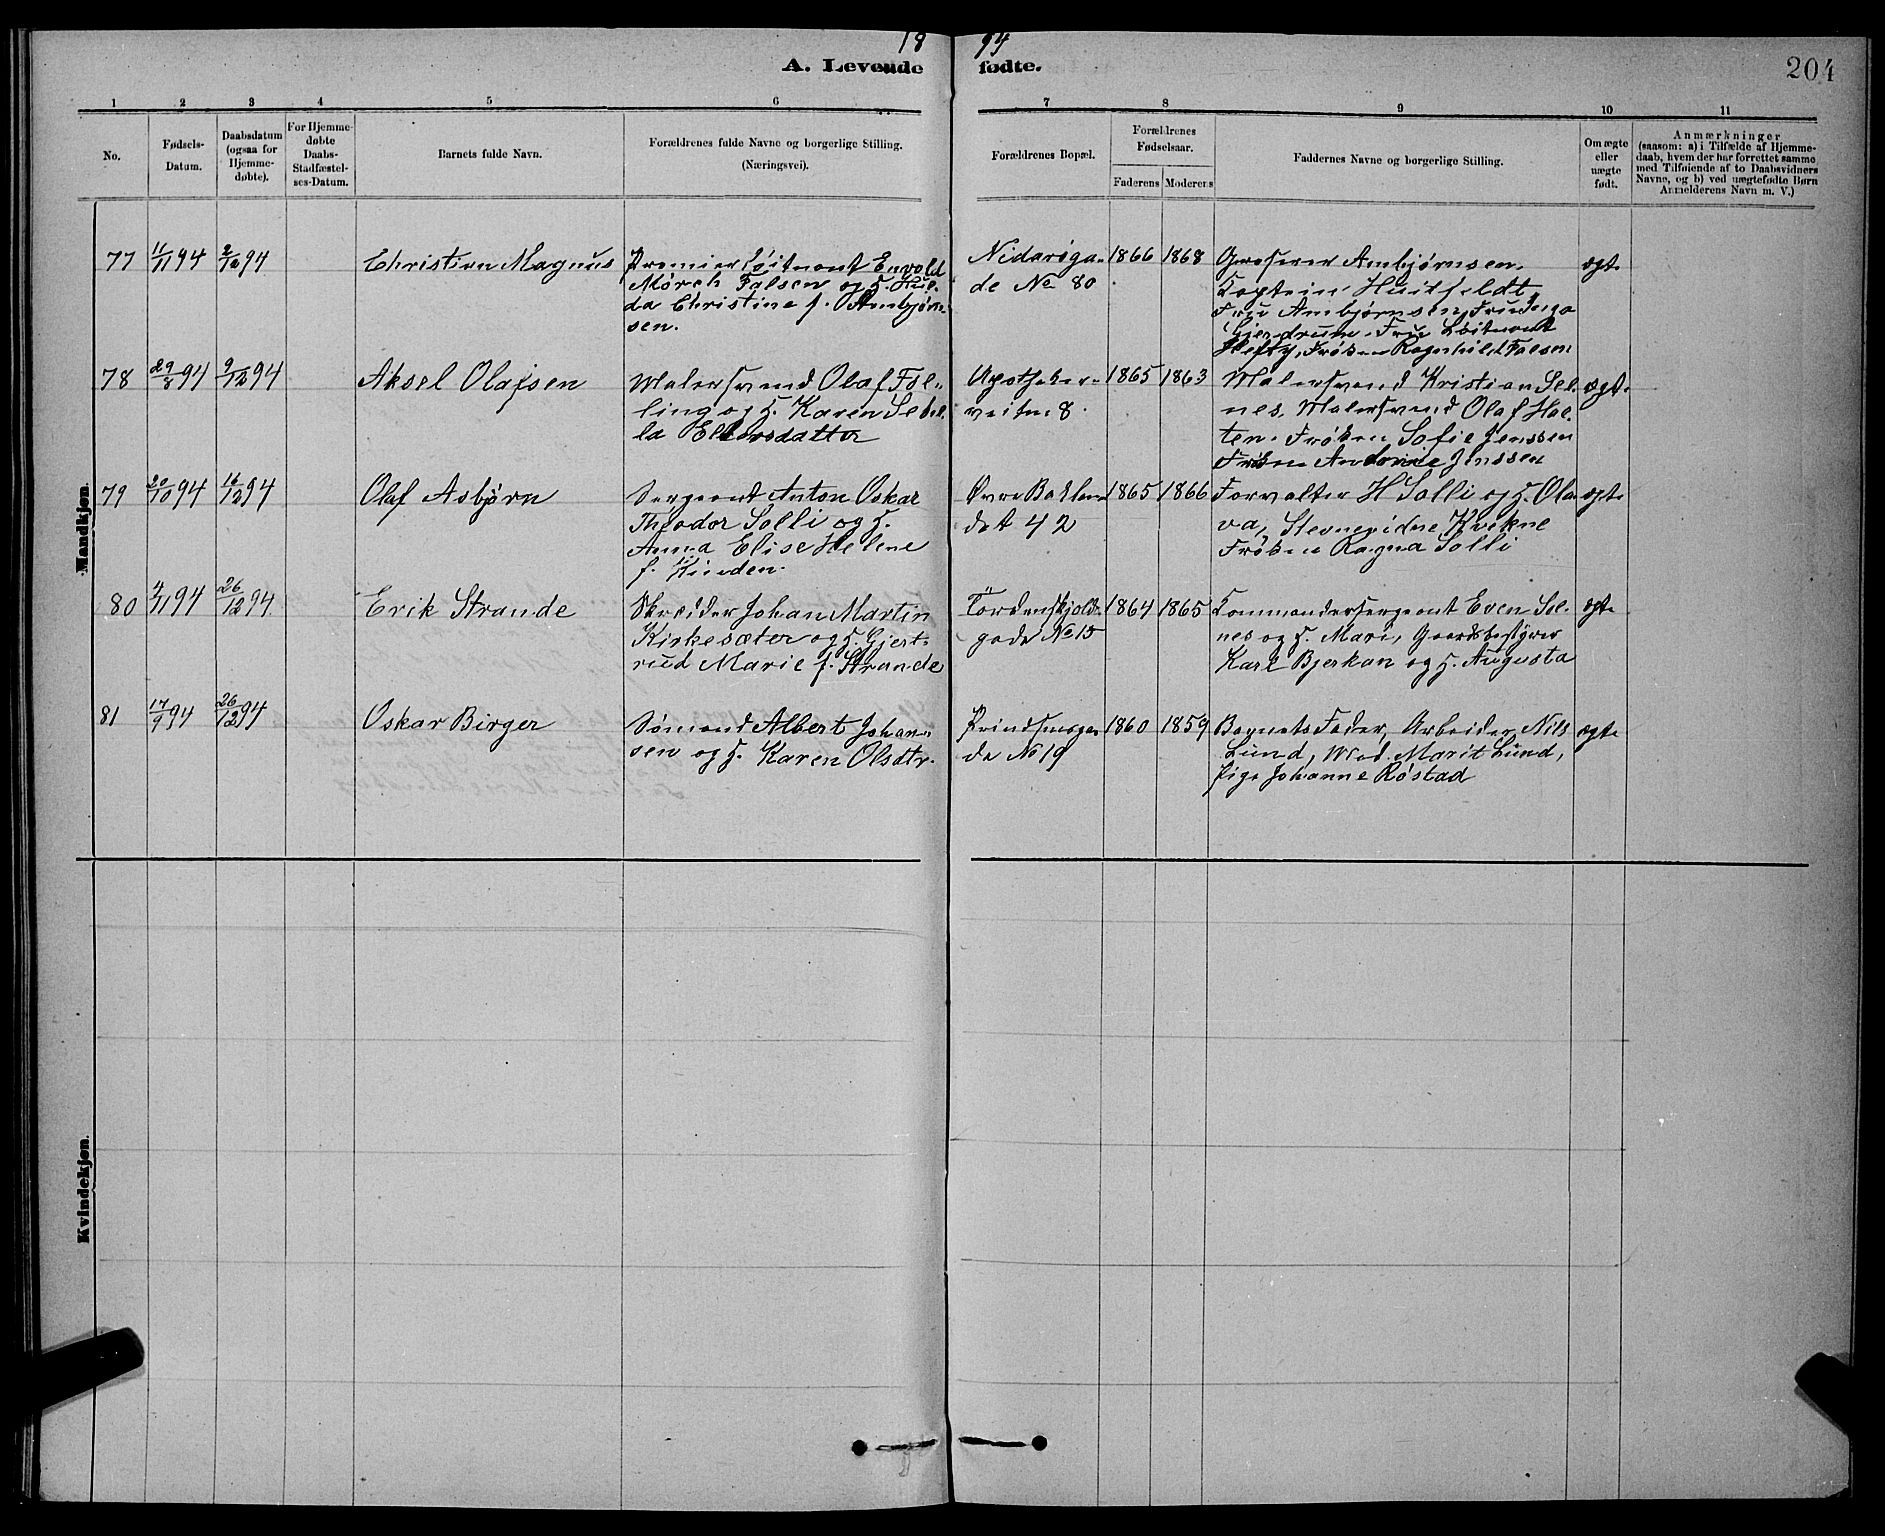 18 94
A. Levende fødte.
204
1 2 3 4 5 6 7 8 9 10 11
No.
Fødsels-
Datum.
Daabsdatum
(ogsaa for
Hjemme-
døbte).
For Hjemme-
døbte
Daabs-
Stadfæstel-
ses-Datum.
Barnets fulde Navn.
Forældrenes fulde Navne og borgerlige Stilling.
(Næringsvei).
Forældrenes Bopæl.
Forældrenes
Fødselsaar.
Faderens Moderens
Faddernes Navne og borgerlige Stilling.
Om ægte
eller
uægte
født.
Anmærkninger
(saasom: a) i Tilfælde af Hjemme-
daab, hvem der har forrettet samme
med Tilføiende af to Daabsvidners
Navne, og b) ved uægtefødte Børn
Anmelderens Navn m. V.)
Mandkjøn.
77 11/11 94 94 Christian Magnus
Premierløitnant Envold
Mörch Falsen og H. Hul-
da Christine f. Ambjørn-
sen.
Nidarøga-
de No 80
1866 1868
Grosserer Ambjørnsen,
Captein Huitfeldt
Fru Ambjørnsen, Fru Inga
Gjerdrum, Fru Løitnant
Hefty, Frøken Ragnhild Falsen
ægte
78 29/8 94 9/12 94 Aksel Olafsen
Malersvend Olaf Fol-
ling og H. Karen
la Ellevsdatter
Apotheker-
veiten 8.
1865 1863
Malersvend Kristian Sel-
nes, Malersvend Olaf Hol-
ten. Frøken Sofie Jenssen
Frøken Andorine Jenssen
ægte
79 20/10 94 16/12 94 Olaf Asbjørn
Sergeant Anton Oskar
Theodor Solli og H.
Anna Elise Helene
f. Hinden.
Øvre Baklan-
det 42
1865 1866
Forvalter H Solli og H. Ola-
va, Stevnevidne Kvikne
Frøken Ragna Solli
ægte
80 4/11 94 26/12 94 Erik Strande
Skrædder Johan Martin
Kirkesæter og H Gjert-
rud Marie f. Strande
Tordenskjolds-
gade No 15
1864 1865
Kommandersergeant Even Sel-
nes og H. Mari, Gaardsbestyrer
Karl Bjerkan og H. Augusta
ægte
81 17/9 94 26/12 94 Oskar Birger
Sømand Albert Johan-
sen og H. Karen Olsdtr.
Prindsensga-
de No 19
1860 1859
Barnets Fader, Arbeider Nils
Lund, Mad. Marit Lund,
Pige Johanne Røstad
ægte
Kvindekjøn.